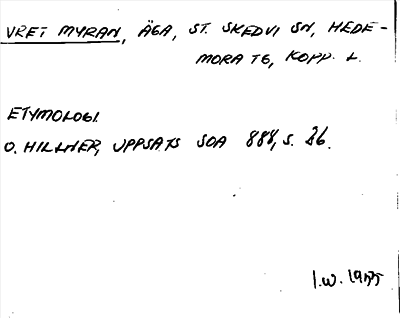 VRET MYRAN, ÄGA, ST. SKEDVI SN, HEDE-
MORA TG, KOPP. L.
ETYMOLOGI.
O. HILLNER, UPPSATS SOA 888, S. 26.
I.W. 1975